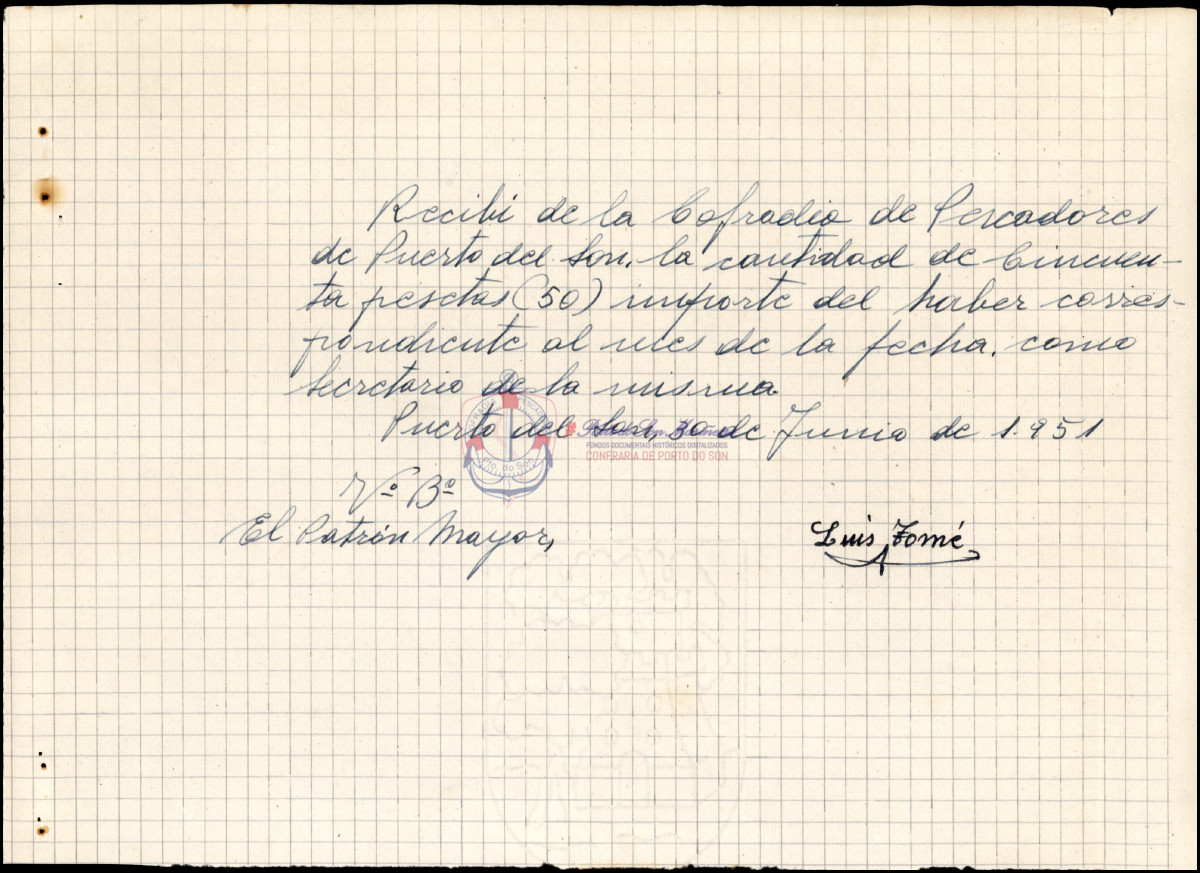 Recibi de la Cofradia de Pescadores
de Puerto del Son, la cantidad de Cincuen-
ta pesetas (50) importe del haber corres-
pondiente al mes de la fecha, como
Secretario de la misma.
Puerto del Son, 30 de Junio de 1.951
FONDOS DOCUMENTAIS HISTÓRICOS DIXITALIZADOS
CONFRARÍA DE PORTO DO SON
Pto. do Son
Vº Bº
El Patrón Mayor,
Luis Tomé